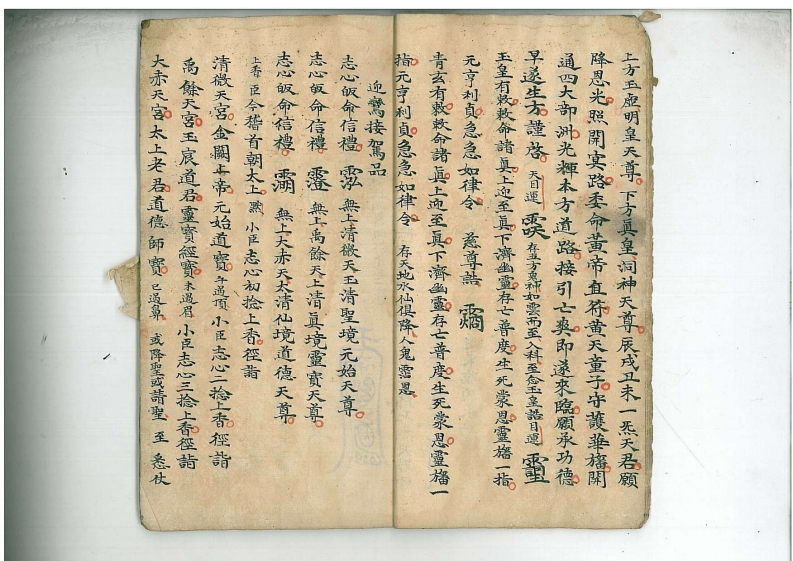 上方玉虛明皇天尊 下方真皇洞神天尊辰戌丑未一炁天君願
降恩光照開冥路委命黃帝直符黃天童子守護華旛開
通四大部洲光輝本方道路接引亡爽即遂來臨願承功德
早遂生方謹啓 天目運 存五方鬼神如雲而至入科至念玉皇誥目運
玉皇有敕敕命諸真上迎至真下濟幽靈存亡普度生死蒙恩靈旛一指
元亨利貞急急如律令 慈尊誥
青玄有敕敕命諸真上迎至真下濟幽靈存亡普度生死蒙恩靈旛一
指元亨利貞急急如律令 存天地水仙俱降人鬼霑恩
迎鸞接駕品
志心皈命信禮 無上清微天玉清聖境元始天尊
志心皈命信禮 無上禹餘天上清真境靈寶天尊
志心皈命信禮 無上大赤天太清仙境道德天尊
上香臣今稽首朝太上 小臣志心初捻上香徑詣
清微天宮金闕上帝元始道寶 小臣志心二捻上香徑詣
禹餘天宮玉宸道君靈寶經寶 小臣志心三捻上香徑詣
大赤天宮太上老君道德師寶 或降聖或請聖 至 悉仗